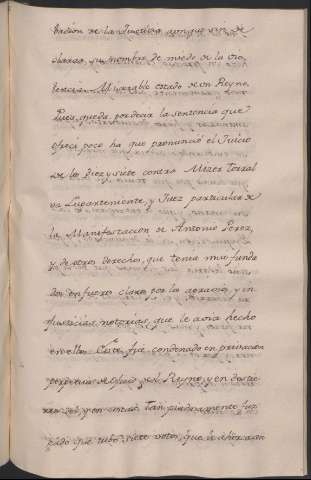 de la Justicia aunque sin de
clarar su nombre de miedo de la vio
lencia. Miserable estado de un Reyno.
Pues queda por decir la sentencia que
ofreci poco ha que pronunció el Juicio
de los Diez y siete contra Micer Torral
va Lugarteniente, y Juez particular de
la Manifestacion de Antonio Perez,
y de otros derechos, que tenia muy funda
dos en fueros claros por los agravios, y in
justicias notorias, que le avia hecho
en ellos. Este fue condenado en privacion
perpetua de oficio en el Reyno, y en destie
rro del y en costas tan piadosamente juz
gado que hubo siete votos que le